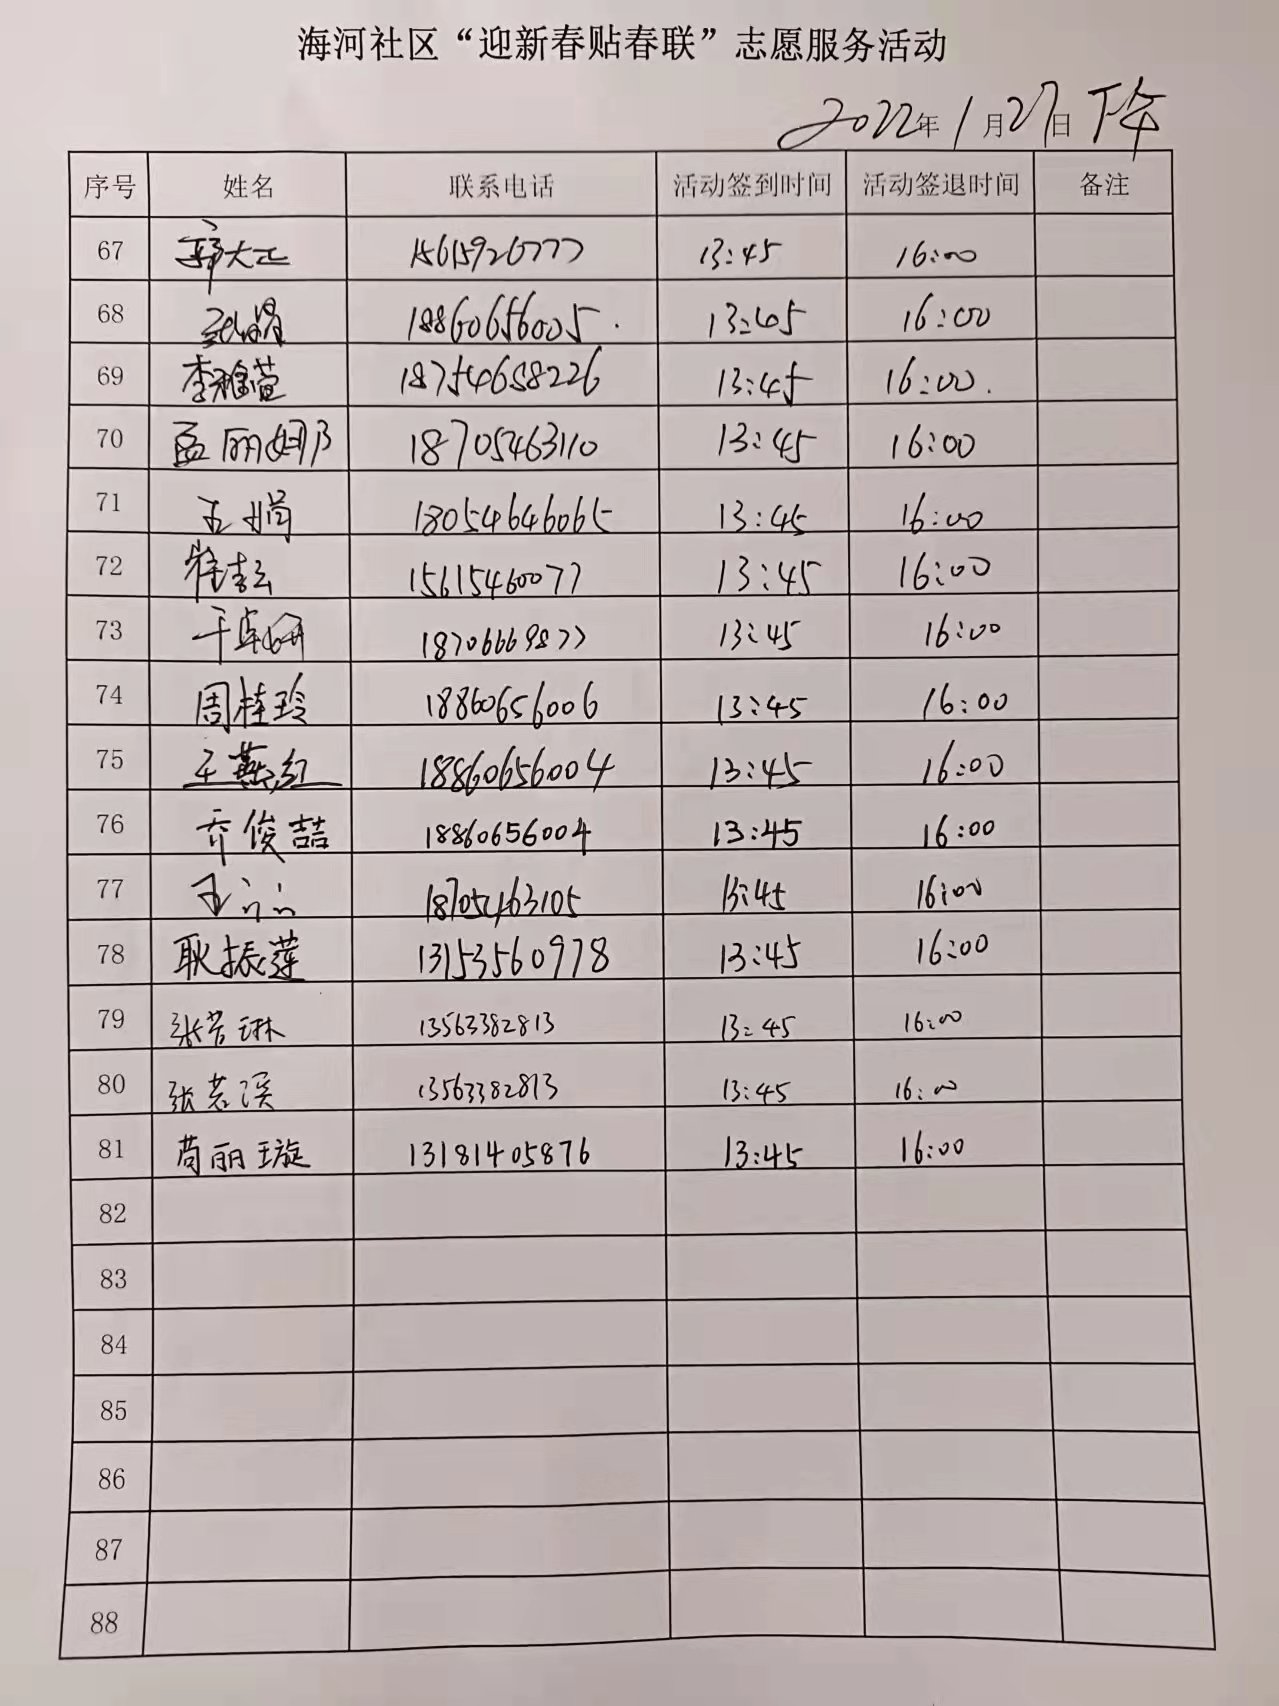 海河社区“迎新春贴春联”志愿服务活动
2022年1月27日 下午
序号 姓名 联系电话 活动签到时间 活动签退时间 备注
67 郭大正 15615926777 13:45 16:00
68 18860656005 13:45 16:00
69 李雅萱 18754658226 13:45 16:00
70 孟丽娜 18705463110 13:45 16:00
71 王娟 18054646065 13:45 16:00
72 15615460077 13:45 16:00
73 于卓妍 18706669877 13:45 16:00
74 周桂玲 18860656006 13:45 16:00
75 王燕红 18860656004 13:45 16:00
76 乔俊喆 18860656004 13:45 16:00
77 18705463105 13:45 16:00
78 耿振莲 13153560978 13:45 16:00
79 张若琳 13563382813 13:45 16:00
80 张若溪 13563382813 13:45 16:00
81 苟丽璇 13181405876 13:45 16:00
82
83
84
85
86
87
88